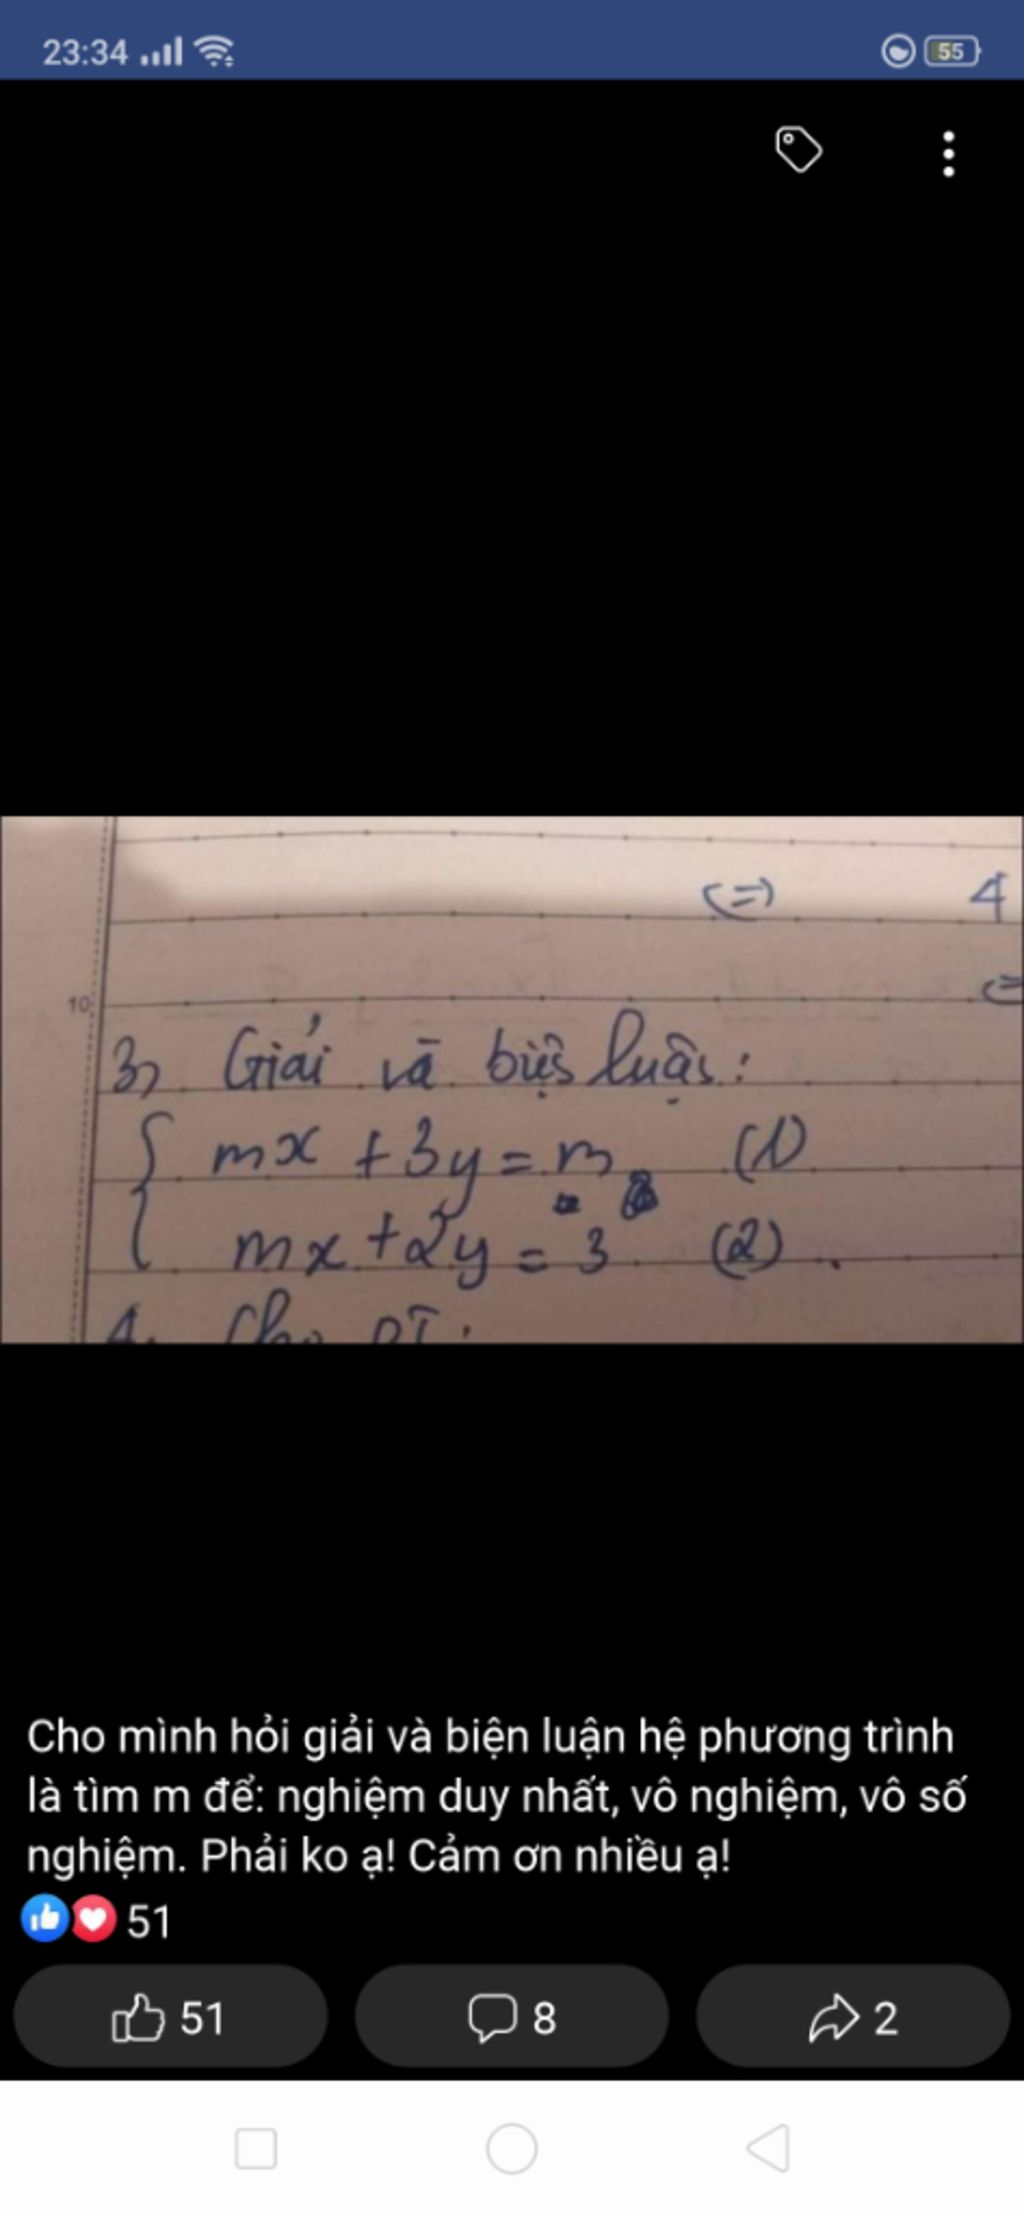 23:34
55
(=)
4
10
3) Giải và biện luận:
mx + 3y = m (1)
mx + 2y = 3 (2)
4. Cho PT:
Cho mình hỏi giải và biện luận hệ phương trình
là tìm m để: nghiệm duy nhất, vô nghiệm, vô số
nghiệm. Phải ko ạ! Cảm ơn nhiều ạ!
51
51
8
2